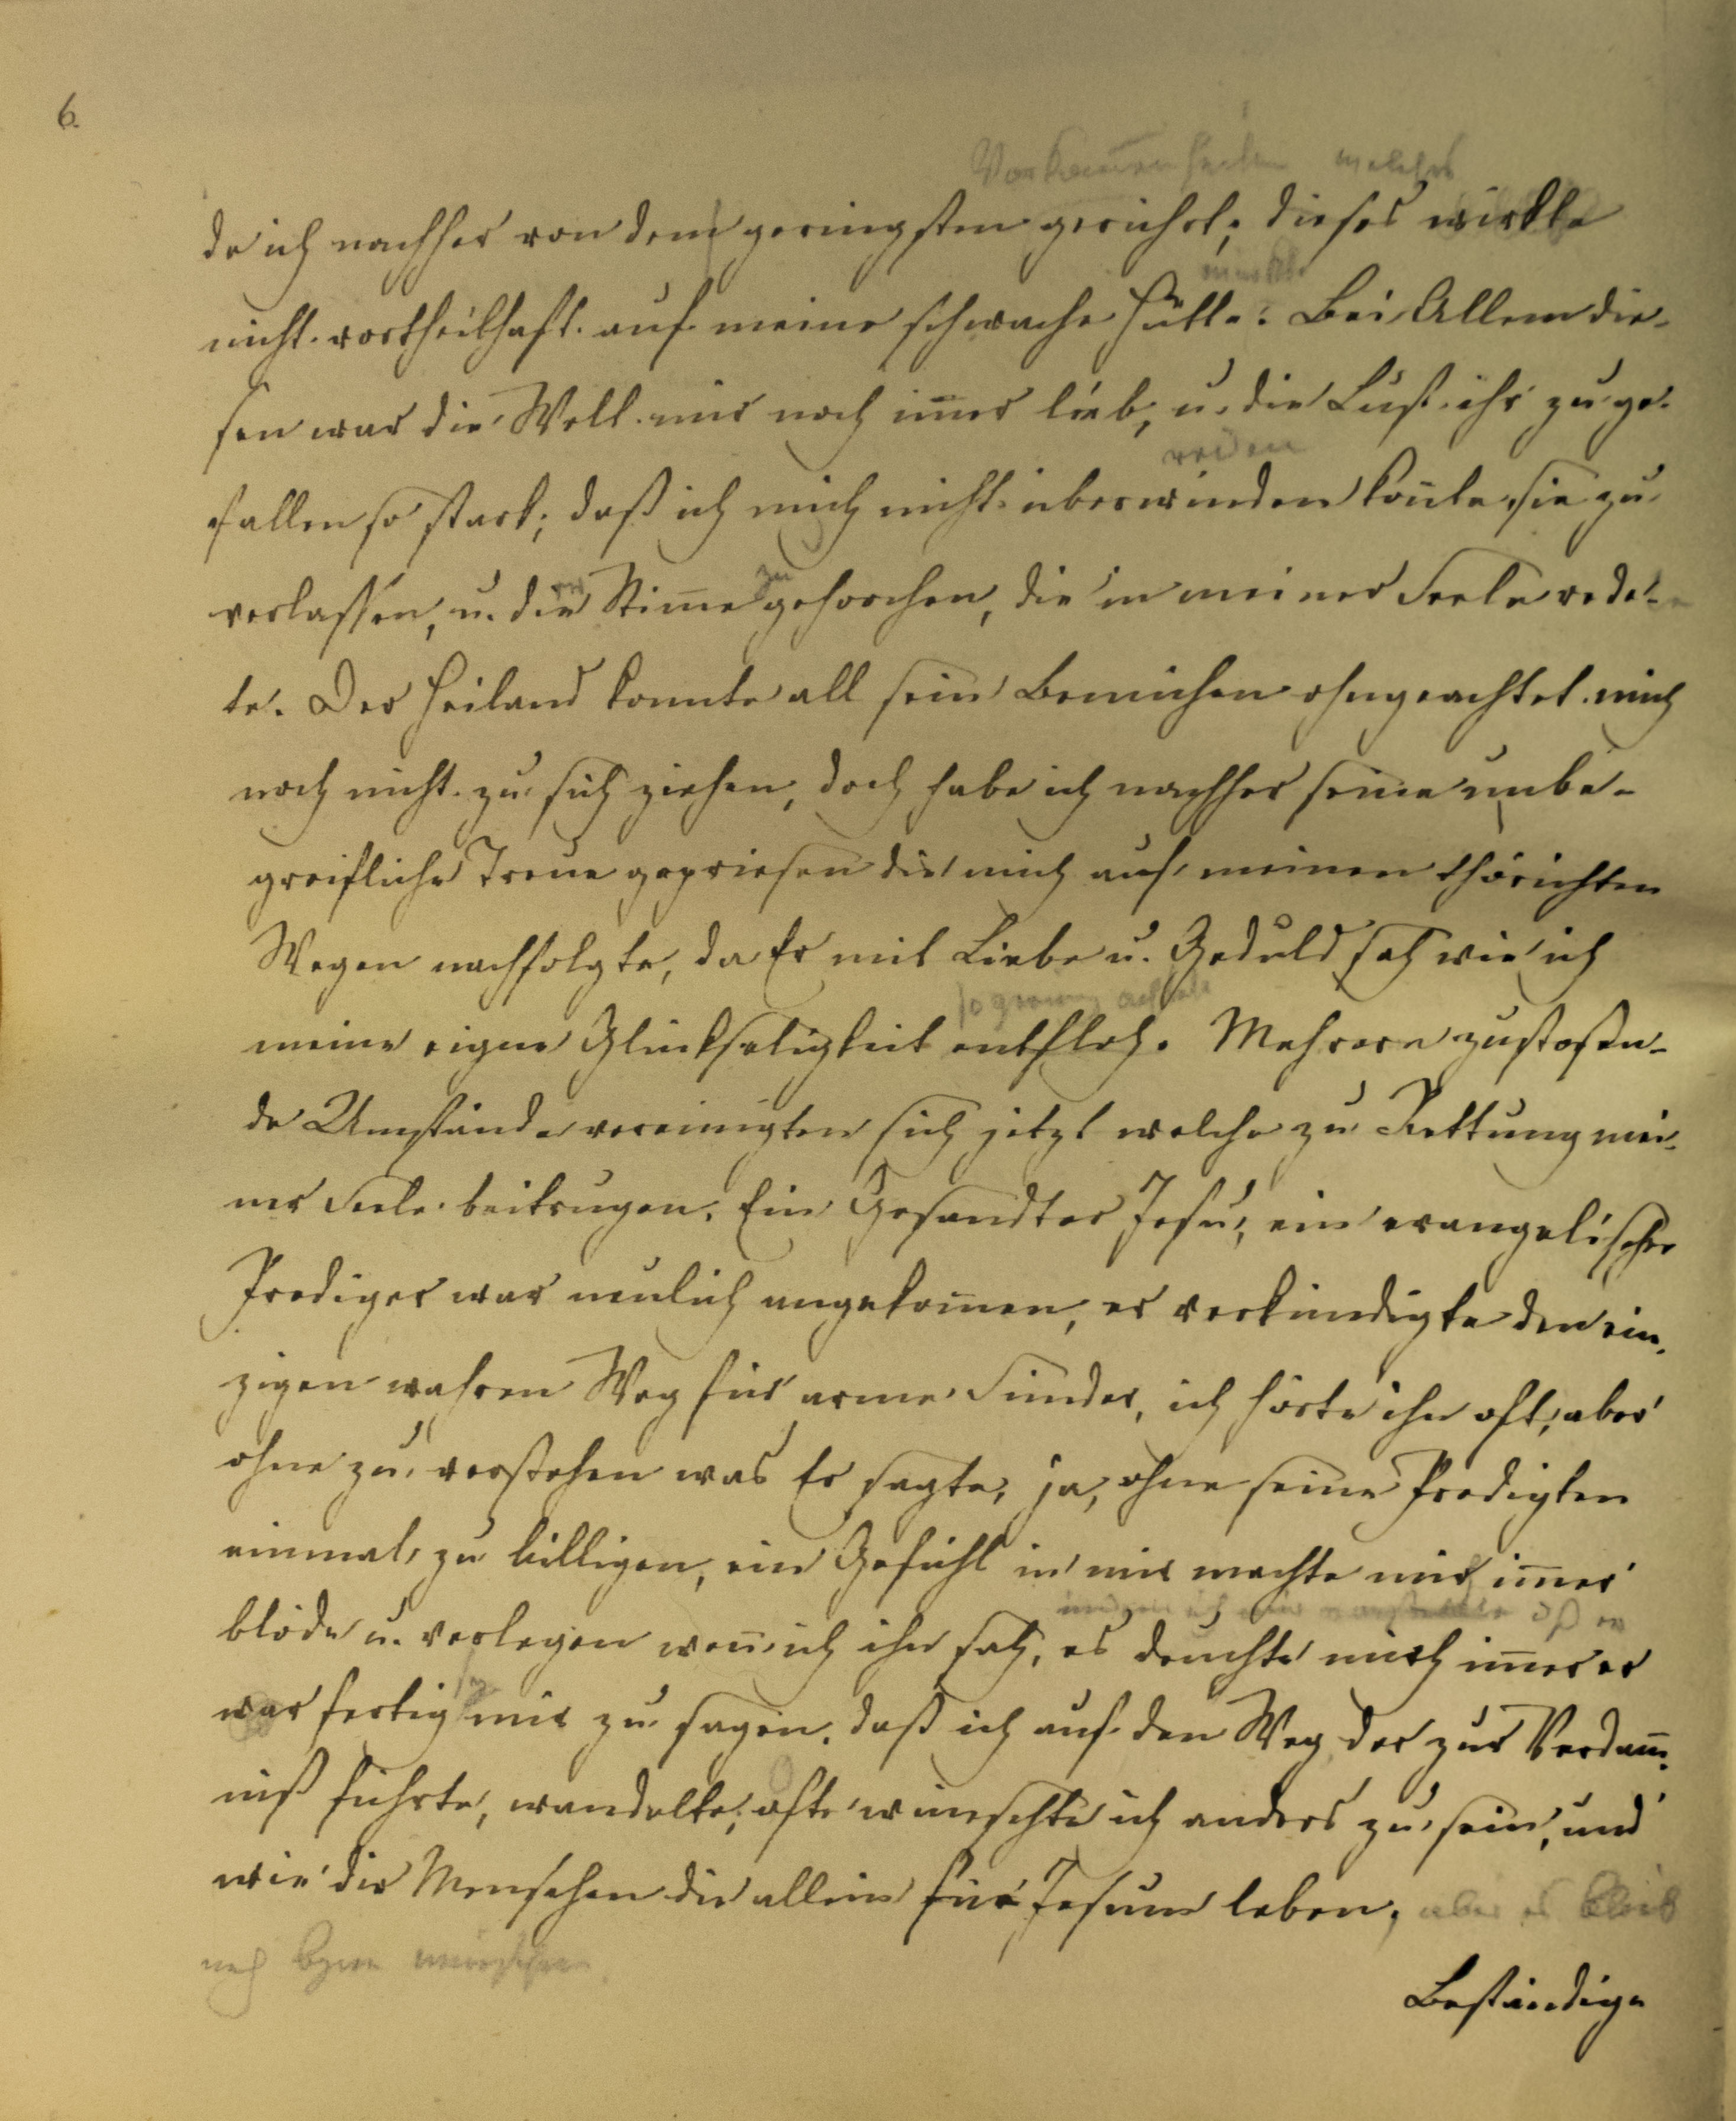 6.
Vorkommenheiten welches
de ich nachher von dem geringsten gerührt; dieses wirkte
nicht vortheilhaft auf meine schwache Hütte: Bei Allem die-
sen war die Welt mir noch im̅er lieb, u. die Lust ihr zu ge-
fallen so stark; daß ich mich nicht überwinden kon̅te sie zu
verlassen, u. der Stim̅e zu gehorchen, die in meiner Seele rede-
te. Der Heiland konnte all sein Bemühen ohngeachtet mich
noch nicht zu sich ziehen, doch habe ich nachher seine unbe-
greifliche Treue gepriesen die mich auf meinen thörichten
Wegen nachfolgte, da Er mit Liebe u. Geduld sah wie ich
meine eigne Glückseligkeit entfloh. Mehrere zustoßen-
de Umstände vereinigten sich jetzt welche zu Rettung mei-
ner Seele beitrugen. Ein Gesandter Jesu, ein evangelischer
Prediger war neulich angekom̅en, er verkündigte den ein-
zigen wahren Weg für arme Sünder, ich hörte ihn oft, aber
ohne zu verstehen was Er sagte, ja, ohne seine Predigten
einmal zu billigen, ein Gefühl in mir machte mich im̅er
blöde u. verlegen wen̅ ich ihn sah, es deuchte mich im̅er er
war fertig mir zu sagen, daß ich auf den Weg der zur Verdam̅-
niß führte, wandelte; ofte wünschte ich anders zu sein, und
wie die Menschen die allein für Jesum leben, aber es blieb
nach bym wünschen
Beständige